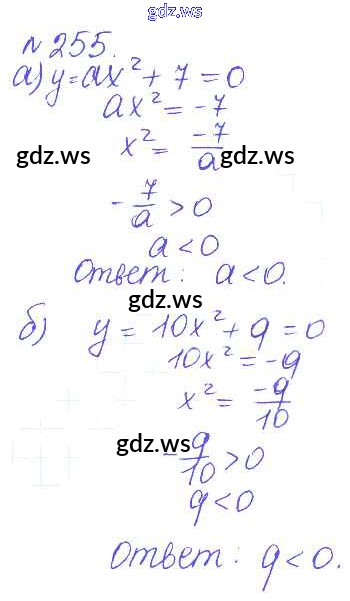 gdz.ws
№255.
а) y=ax²+7=0
ax²=-7
x²= -7/a
gdz.ws gdz.ws
-7/a>0
a<0
Ответ: a<0.
gdz.ws
б) y=10x²+q=0
10x²=-q
gdz.ws
x²= -q/10
gdz.ws
-q/10>0
gdz.ws
q<0
Ответ: q<0.